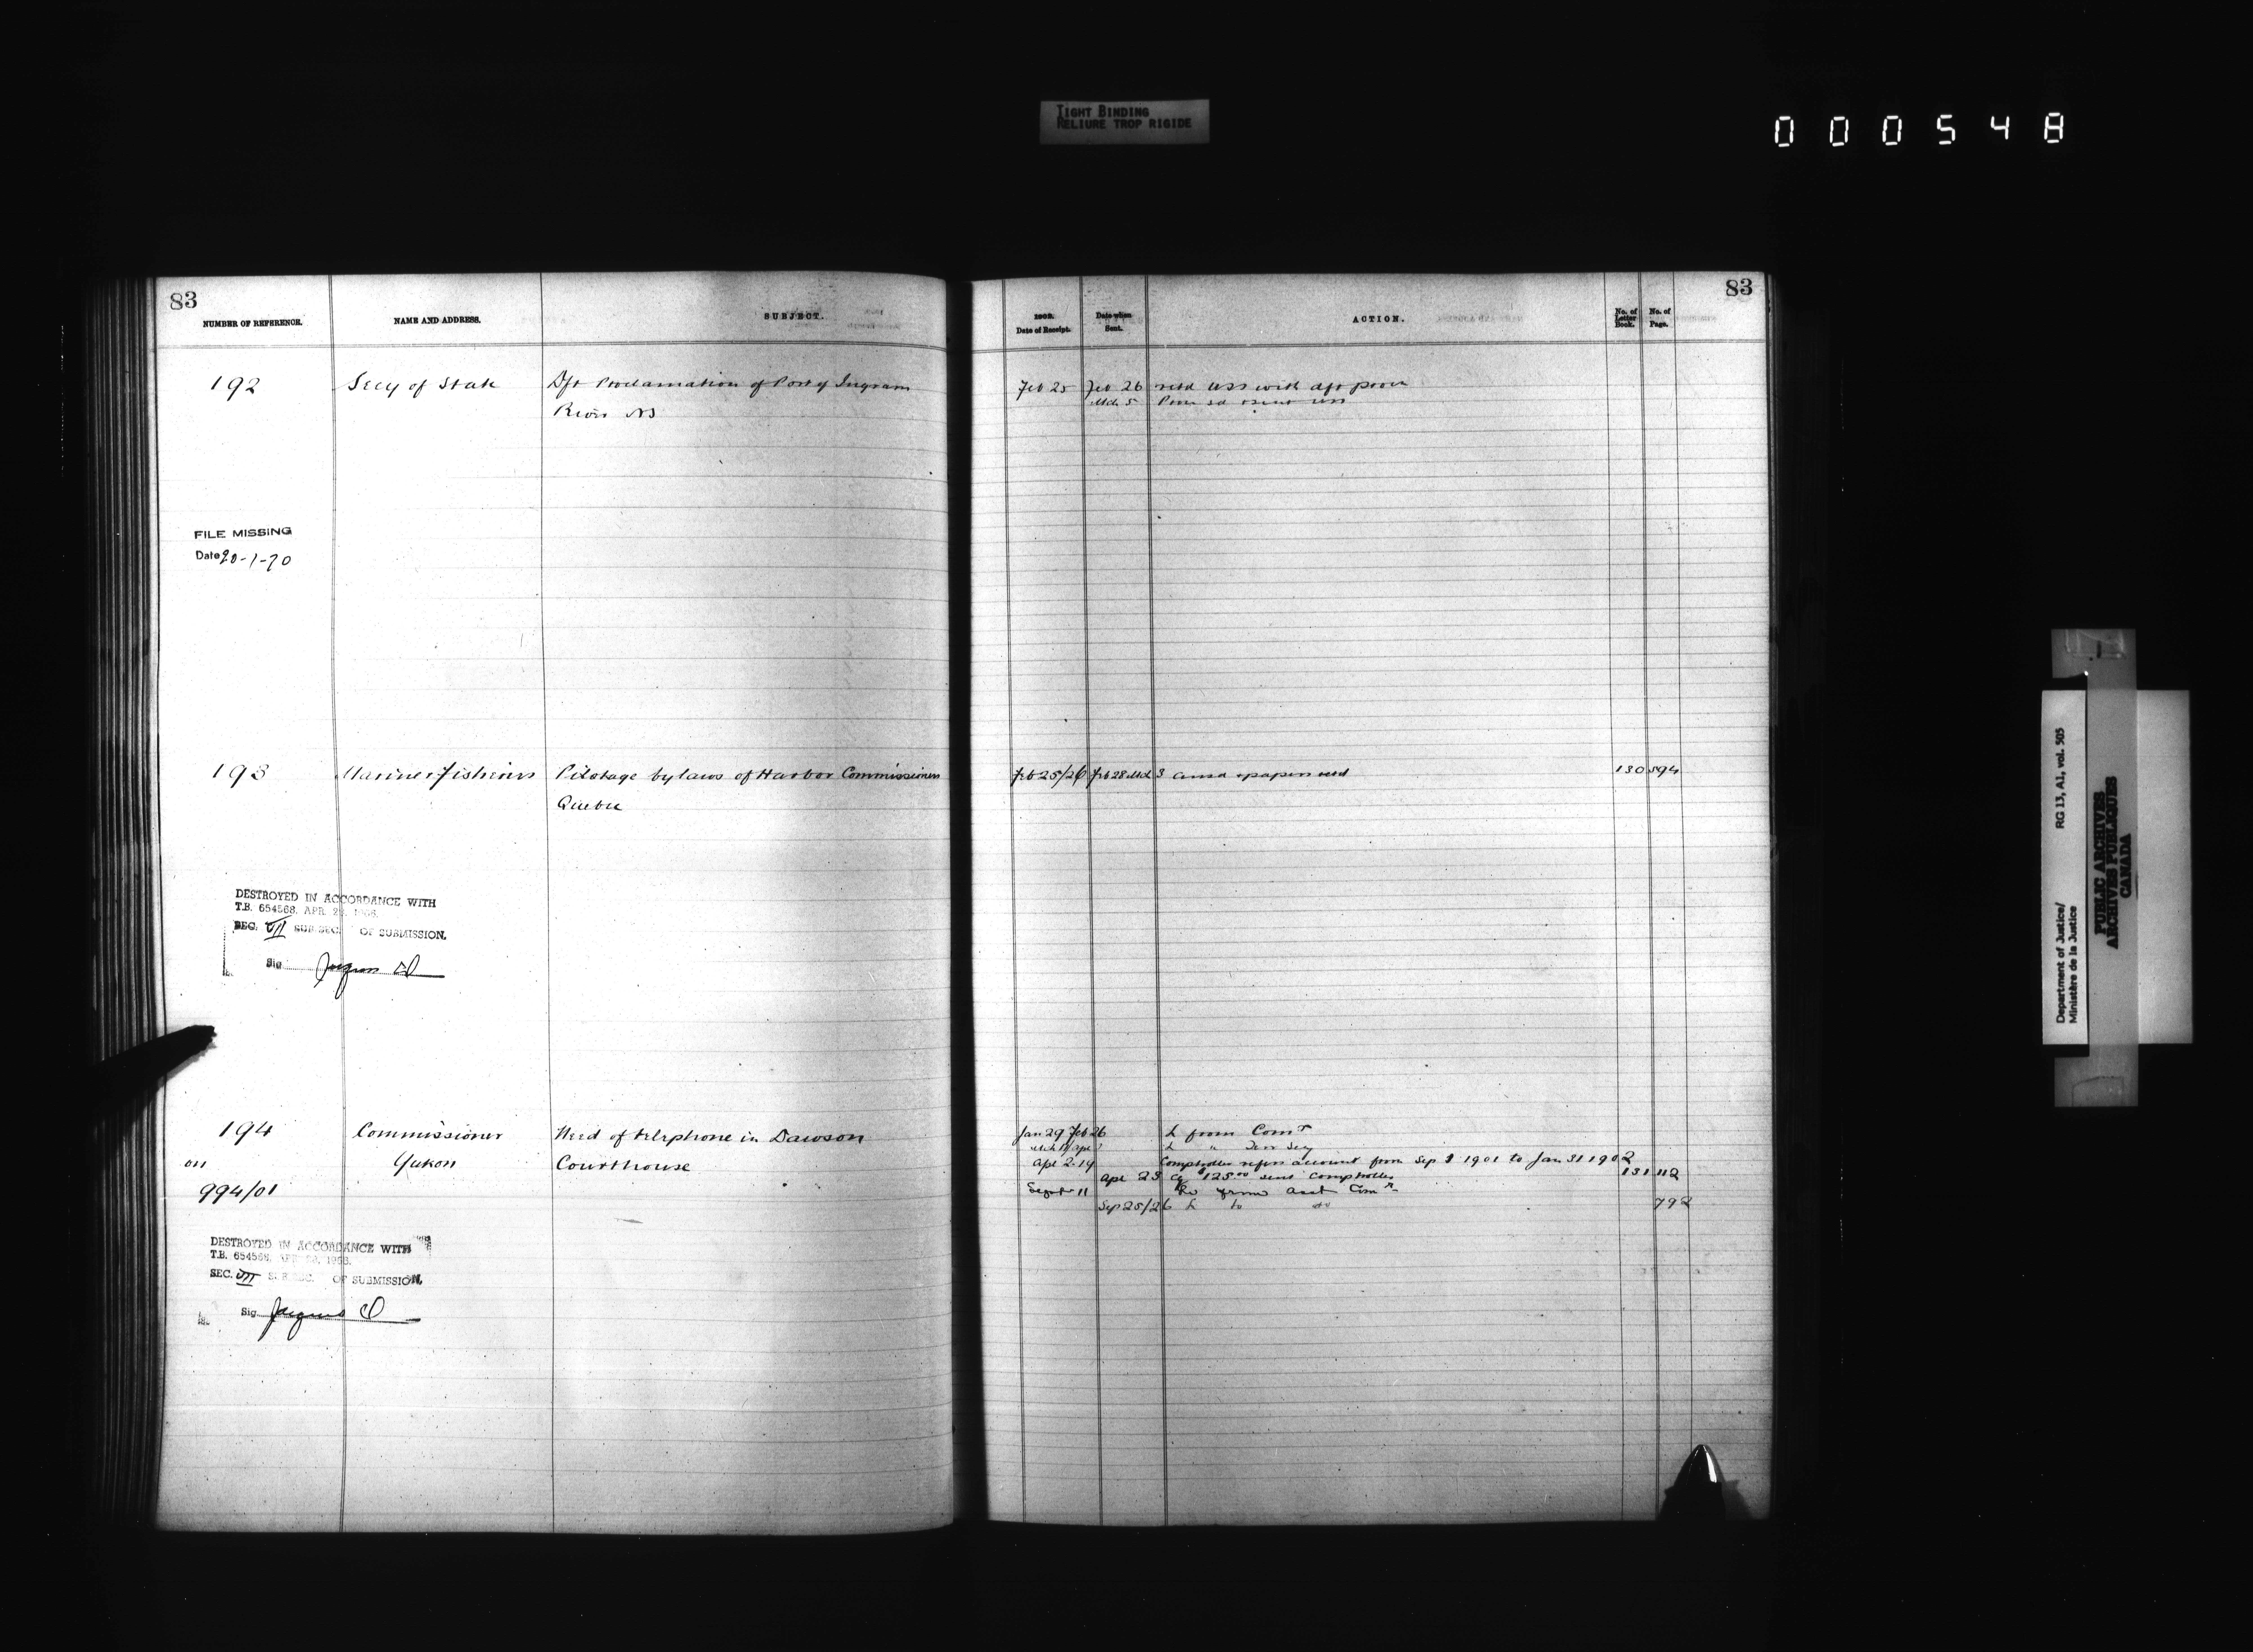 TIGHT BINDING
RELIURE TROP RIGIDE
000548
83
NUMBER OF REFERENCE.
NAME AND ADDRESS.
SUBJECT.
192
Secy of State
Dft Proclamation of Port of Ingram
River NS
FILE MISSING
Date 20-1-70
193
Marine & Fisheries
Pilotage bylaws of Harbor Commissioners
Quebec
DESTROYED IN ACCORDANCE WITH
T.B. 654568, APR. 1968.
SEC. VII SUB SEC. OF SUBMISSION.
Sig.
194
Commissioner
Need of telephone in Dawson
on
Yukon
Courthouse
994/01
DESTROYED IN ACCORDANCE WITH
T.B. 654568, 1968.
SEC. VII SUB SEC. OF SUBMISSION.
Sig.
83
1902.
Date of Receipt.
Date when
Sent.
ACTION.
No. of
Letter
Book.
No. of
Page.
Feb 25 Feb 26 retd USS with dft
Mch 5
Feb 25/26 Feb 28 Mch 3 papers retd 130 594
Jan 29 Feb 26 L from Comr
L " Terr Secy
Apl 2-14 Comptroller refers account from Sep 1901 to Jan 31 1902
Apl 23 $125.00 sent Comptroller 131 112
11 from Asst Comr
Sep 25/26 L to do 792
Department of Justice/
Ministère de la Justice
RG 13, A1, vol. 505
PUBLIC ARCHIVES
ARCHIVES PUBLIQUES
CANADA